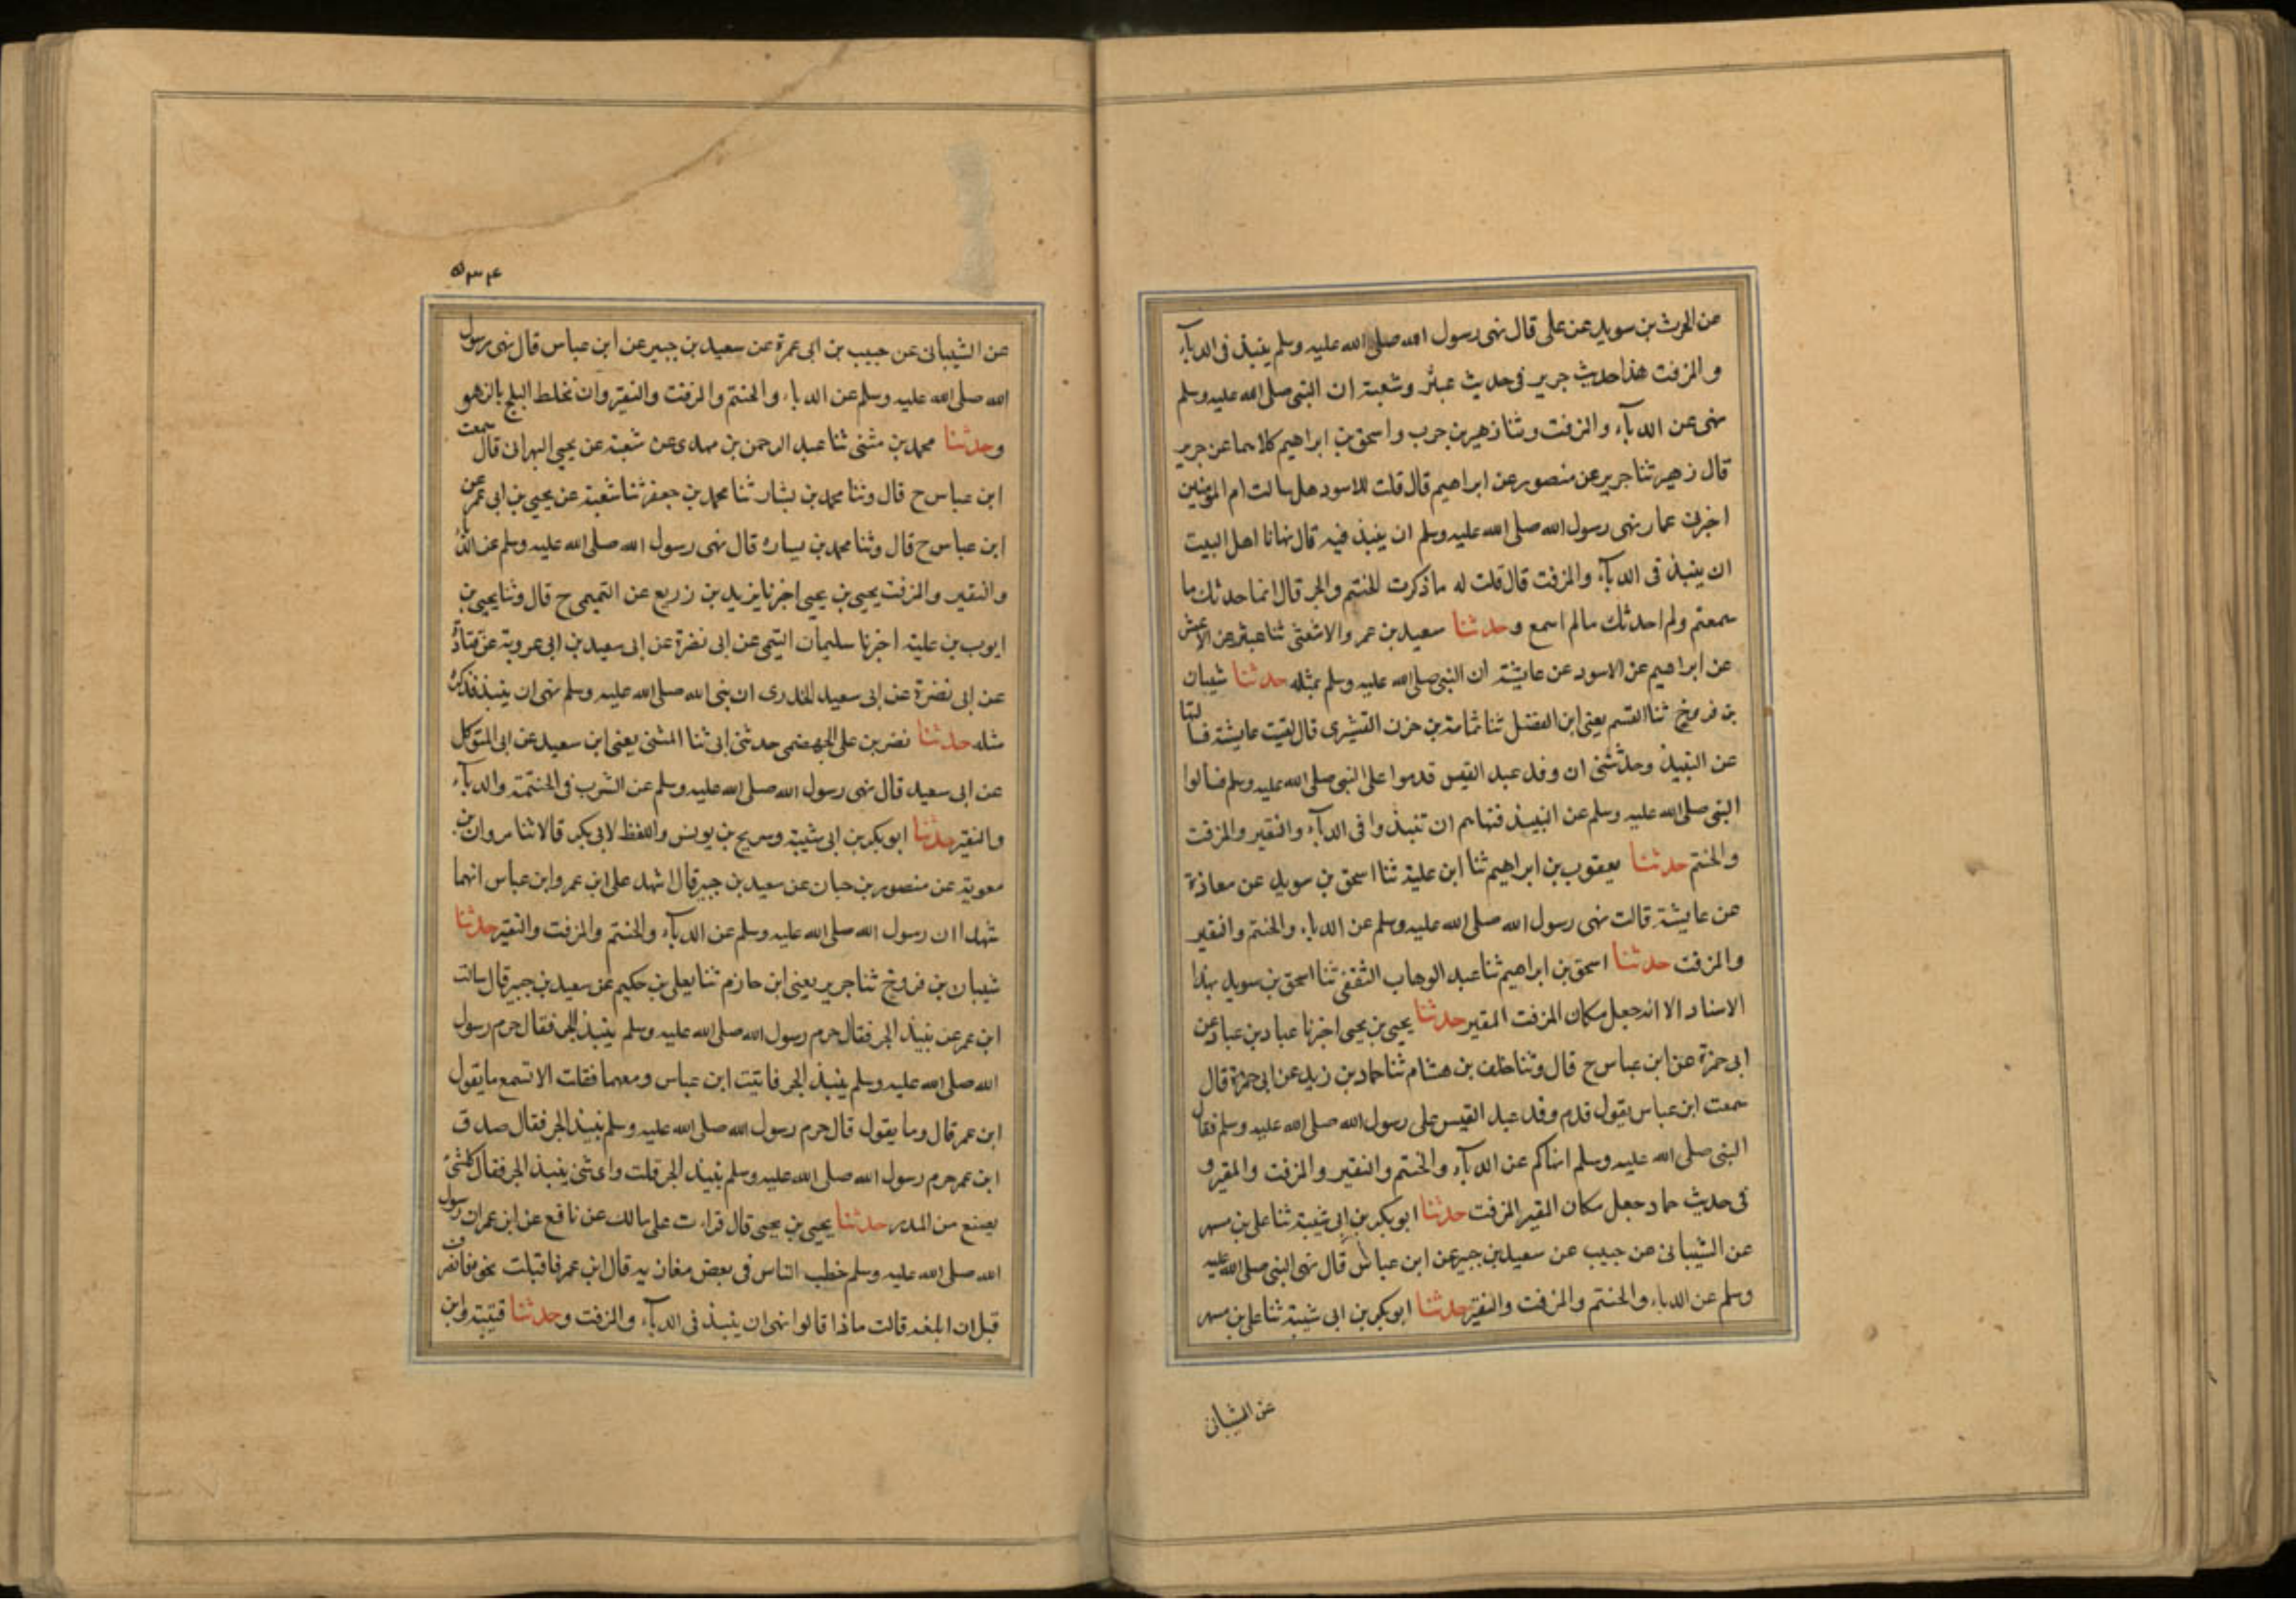 عن الحرث بن سويد عن على قال نهى رسول الله صلى الله عليه وسلم ينبذ فى الدبآء
والمزفت هذا حديث جرير فى حديث عبثر وشعبة ان النبى صلى الله عليه وسلم
نهى عن الدبآء والمزفت وثنا زهير بن حرب واسحق بن ابراهيم كلاهما عن جرير
قال زهير ثنا جرير عن منصور عن ابراهيم قال قلت للاسود هل سالت ام المؤمنين
اخبرنى عما نهى رسول الله صلى الله عليه وسلم ان ينبذ فيه قال نهانا اهل البيت
ان ينبذ فى الدبآء والمزفت قال قلت له ما ذكرت الحنتم والجر قال انما احدثك ما
سمعتم ولم احدثك مالم اسمع وحدثنا سعيد بن عمر والاشعثى ثنا عبثر عن الاعمش
عن ابراهيم عن الاسود عن عايشة ان النبى صلى الله عليه وسلم بمثله حدثنا شيبان
بن فروخ ثنا القسم يعنى ابن الفضل ثنا ثمامة بن حزن القشيرى قال لقيت عايشة فسالتها
عن النبيذ وحدثتنى ان وفد عبد القيس قدموا على النبى صلى الله عليه وسلم فسالوا
النبى صلى الله عليه وسلم عن النبيذ فنهاهم ان تنبذوا فى الدبآء والنقير والمزفت
والحنتم حدثنا يعقوب بن ابراهيم ثنا ابن علية ثنا اسحق بن سويد عن معاذة
عن عايشة قالت نهى رسول الله صلى الله عليه وسلم عن الدباء والحنتم والنقير
والمزفت حدثنا اسحق بن ابراهيم ثنا عبد الوهاب الثقفى ثنا اسحق بن سويد بهذا
الاسناد الا انه جعل مكان المزفت المقير حدثنا يحيى بن يحيى اخبرنا عباد بن عباد عن
ابى حمزة عن ابن عباس ح قال وثنا خلف بن هشام ثنا حماد بن زيد عن ابى حمزة قال
سمعت ابن عباس يقول قدم وفد عبد القيس على رسول الله صلى الله عليه وسلم فقال
النبى صلى الله عليه وسلم انهاكم عن الدبآء والحنتم والنقير والمزفت والمقير و
فى حديث حماد جعل مكان المقير المزفت حدثنا ابو بكر بن ابى شيبة ثنا على بن مسهر
عن الشيبانى عن حبيب عن سعيد بن جبير عن ابن عباس قال نهى النبى صلى الله عليه
وسلم عن الدباء والحنتم والمزفت والنقير حدثنا ابو بكر بن ابى شيبة ثنا على بن مسهر
عن الشيبانى
۵۳۴
عن الشيبانى عن حبيب بن ابى عمرة عن سعيد بن جبير عن ابن عباس قال نهى رسول
الله صلى الله عليه وسلم عن الدباء والحنتم والمزفت والنقير وان نخلط البلح بالزهو
وحدثنا محمد بن مثنى ثنا عبد الرحمن بن مهدى عن شعبة عن يحيى البهرانى قال سمعت
ابن عباس ح قال وثنا محمد بن بشار ثنا محمد بن جعفر ثنا شعبة عن يحيى بن ابى عمر عن
ابن عباس ح قال وثنا محمد بن بساره قال نهى رسول الله صلى الله عليه وسلم عن الدباء
والنقير والمزفت يحيى بن يحيى اخبرنا يزيد بن زريع عن التميمى ح قال وثنا يحيى بن
ايوب بن علية اخبرنا سليمان التيمى عن ابى نضرة عن ابى سعيد بن ابى عروبة عن قتادة
عن ابى نضرة عن ابى سعيد الخدرى ان نبى الله صلى الله عليه وسلم نهى ان ينبذ فذكره
مثله حدثنا نضر بن على الجهضمى حدثنى ابى ثنا المثنى يعنى ابن سعيد عن ابى المتوكل
عن ابى سعيد قال نهى رسول الله صلى الله عليه وسلم عن الشرب فى الحنتمة والدبآء
والنقير حدثنا ابو بكر بن ابى شيبة وسريج بن يونس واللفظ لابى بكر قالا ثنا مروان بن
معوية عن منصور بن حبان عن سعيد بن جبير قال اشهد على ابن عمر وابن عباس انهما
شهدا ان رسول الله صلى الله عليه وسلم عن الدبآء والحنتم والمزفت والنقير حدثنا
شيبان بن فروخ ثنا جرير يعنى ابن حازم ثنا يعلى بن حكيم عن سعيد بن جبير قال سالت
ابن عمر عن نبيذ الجر فقال حرم رسول الله صلى الله عليه وسلم ينبذ الجر فقال حرم رسول
الله صلى الله عليه وسلم ينبذ الجر فاتيت ابن عباس ومعهما فقلت الا تسمع ما يقول
ابن عمر قال وما يقول قال حرم رسول الله صلى الله عليه وسلم نبيذ الجر فقال صدق
ابن عمر حرم رسول الله صلى الله عليه وسلم نبيذ الجر قلت واى شئ ينبذ الجر فقال كل شئ
يصنع من المدر حدثنا يحيى بن يحيى قال قراءت على مالك عن نافع عن ابن عمر ان رسول
الله صلى الله عليه وسلم خطب الناس فى بعض مغازيه قال ابن عمر فاقبلت نحوه فانصرف
قبل ان ابلغه قالت ماذا قالوا نهى ان ينبذ فى الدبآء والمزفت وحدثنا قتيبة وابن